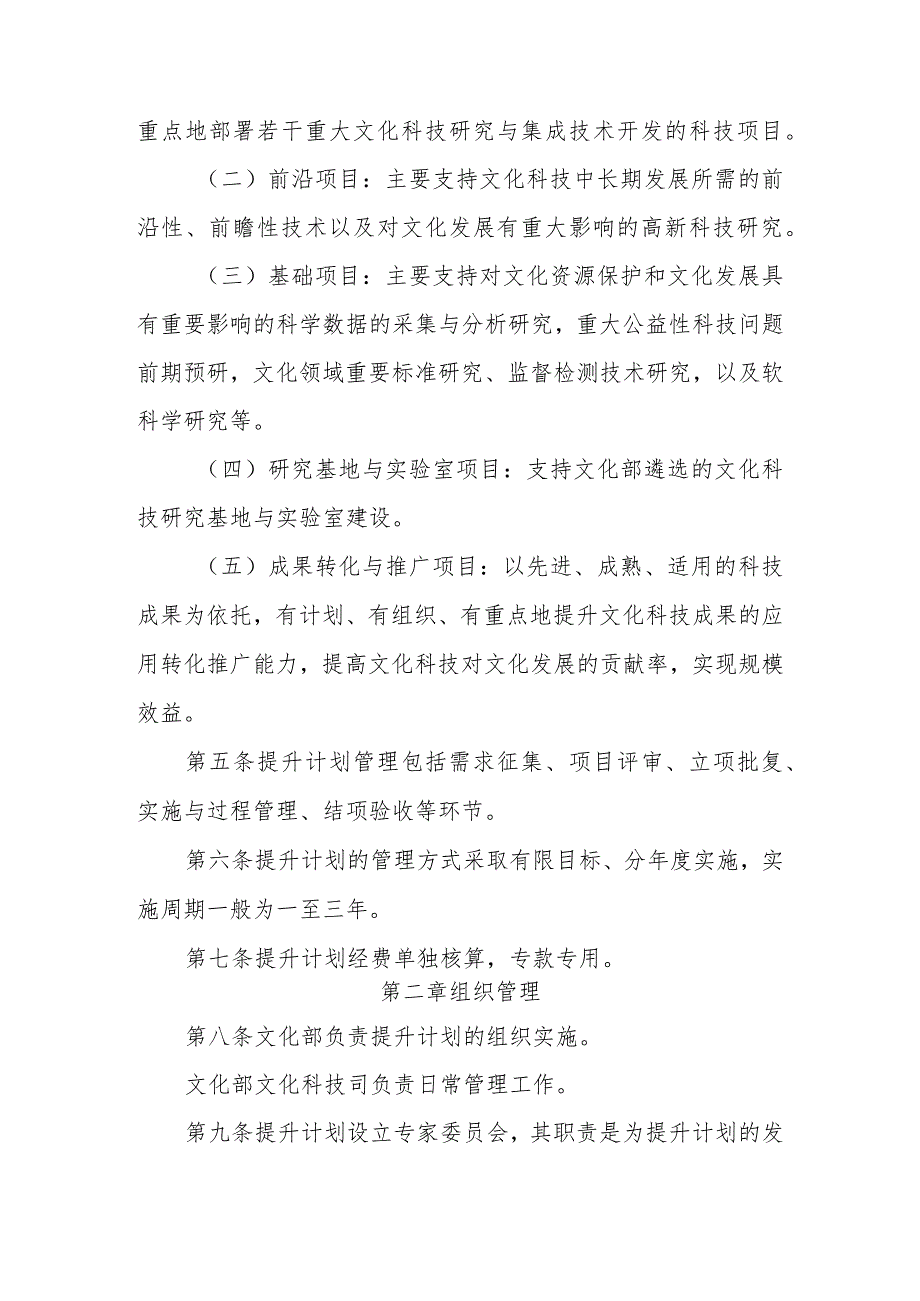 重点地部署若干重大文化科技研究与集成技术开发的科技项目。
（二）前沿项目：主要支持文化科技中长期发展所需的前
沿性、前瞻性技术以及对文化发展有重大影响的高新科技研究。
（三）基础项目：主要支持对文化资源保护和文化发展具
有重要影响的科学数据的采集与分析研究，重大公益性科技问题
前期预研，文化领域重要标准研究、监督检测技术研究，以及软
科学研究等。
（四）研究基地与实验室项目：支持文化部遴选的文化科
技研究基地与实验室建设。
（五）成果转化与推广项目：以先进、成熟、适用的科技
成果为依托，有计划、有组织、有重点地提升文化科技成果的应
用转化推广能力，提高文化科技对文化发展的贡献率，实现规模
效益。
第五条提升计划管理包括需求征集、项目评审、立项批复、
实施与过程管理、结项验收等环节。
第六条提升计划的管理方式采取有限目标、分年度实施，实
施周期一般为一至三年。
第七条提升计划经费单独核算，专款专用。
第二章组织管理
第八条文化部负责提升计划的组织实施。
文化部文化科技司负责日常管理工作。
第九条提升计划设立专家委员会，其职责是为提升计划的发